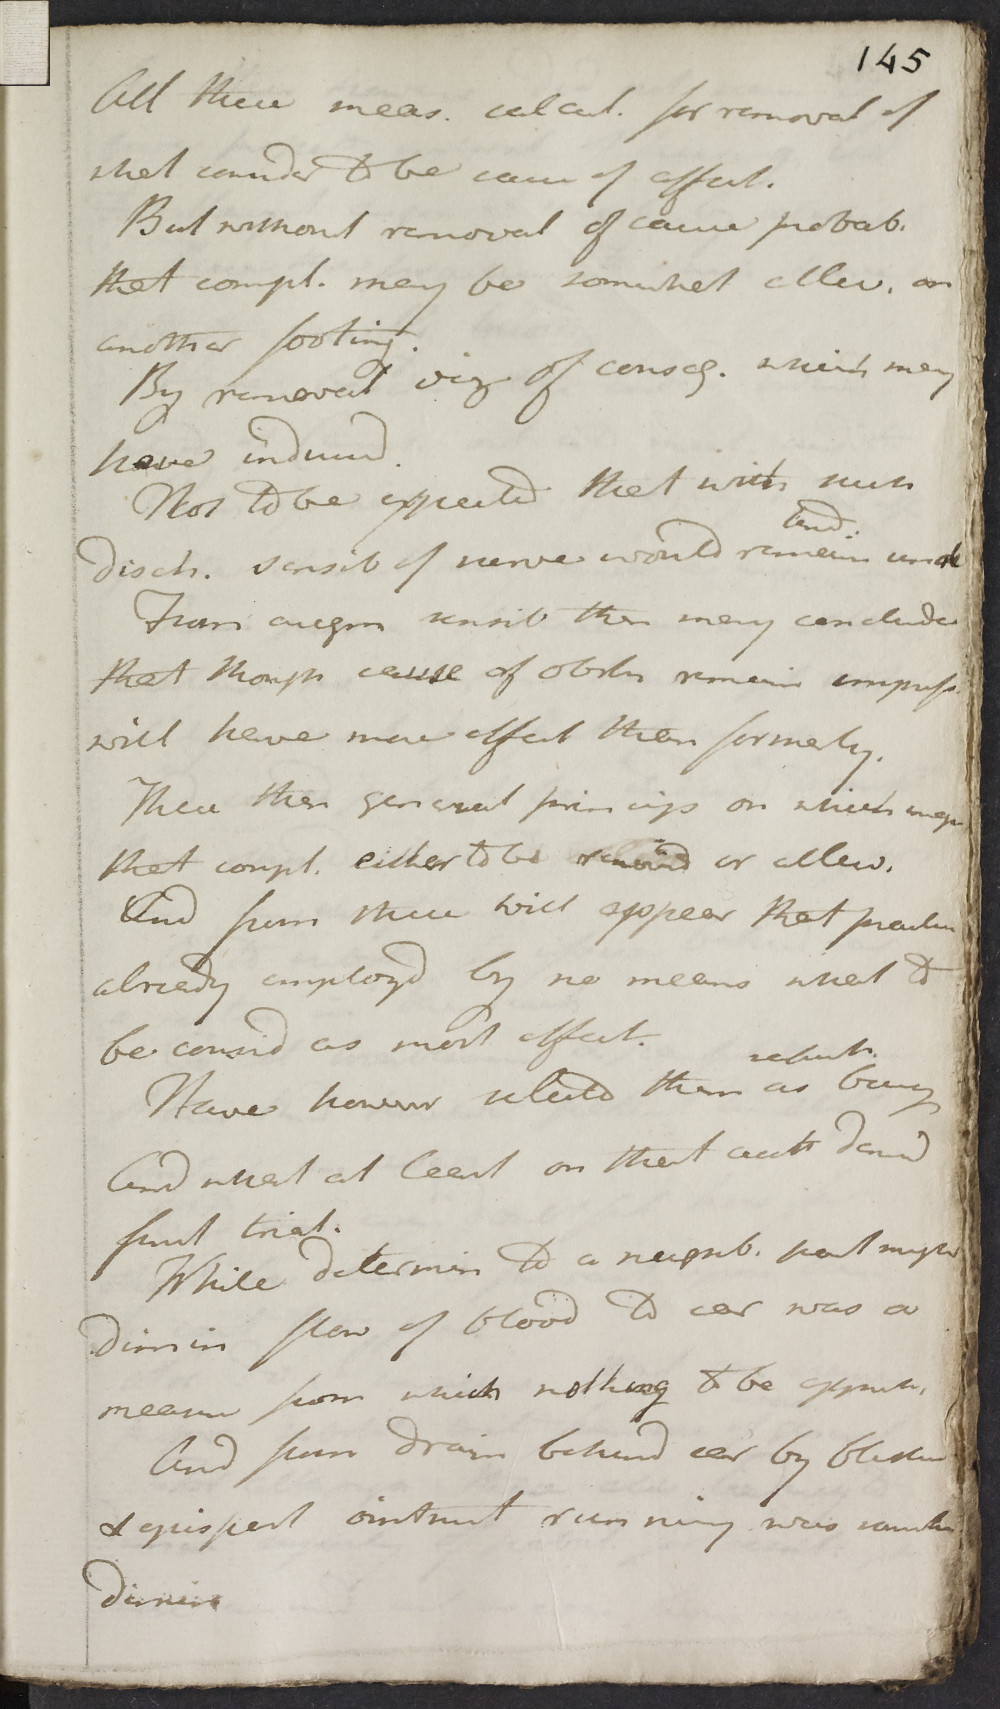 145
All these meas. calcul. for removal of
what consider to be cause of affect.
But without removal of cause probab.
that compl. may be somewhat allev. on
another footing.
By removal viz of conseq. which may
have induced.
Not to be expected that with such
disch. sensib of nerve would remain und
From augm sensib then may conclude
that though cause of obstr remain impress.
will have more effect then formerly.
These then general princips on which
that compl. either to be removed or allev.
And from these will appear that practice
already employd by no means what to
be consid as most effect.
Have however selected them as being
And what at least on that acct
first trial.
While determin to a neighb. part might
dimin flow of blood to ear was a
measure from which nothing to be appreh.
And from drain behind ear by blister
& epispast ointment running was
dimin